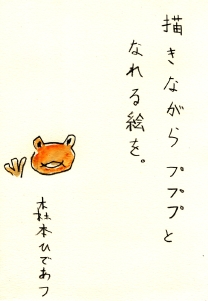 描きながら プププと
なれる絵を。
杜本ひであつ